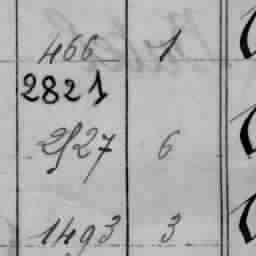 466 1
2821
2827 6
1493 3